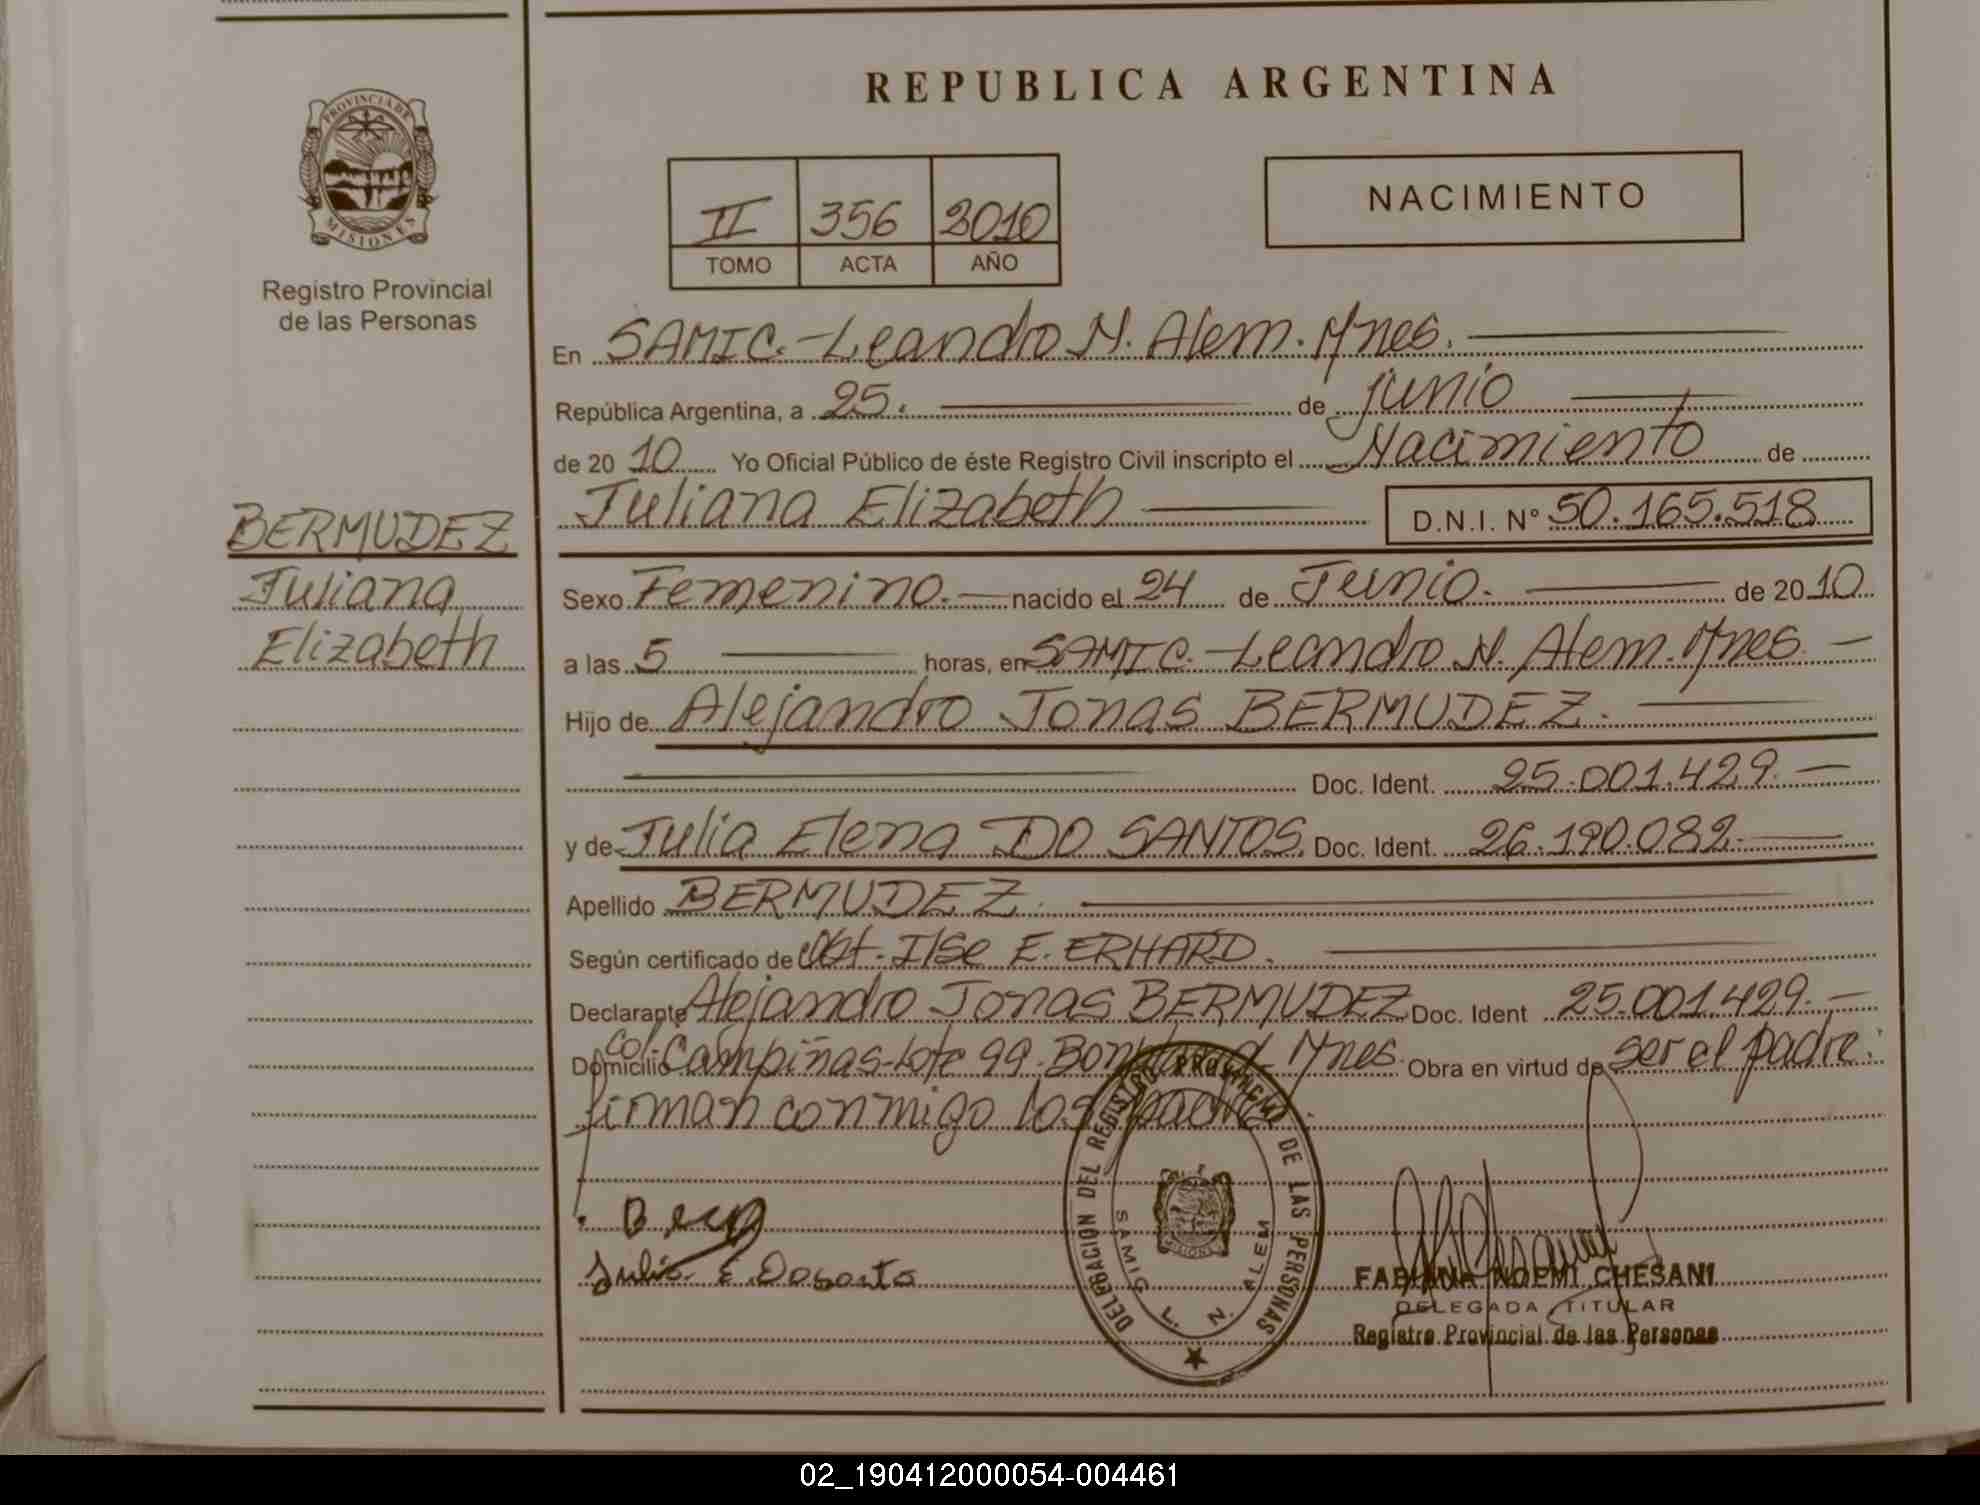 REPUBLICA ARGENTINA
PROVINCIA DE
MISIONES
Registro Provincial
de las Personas
II 356 2010
TOMO ACTA AÑO
NACIMIENTO
En SAMIC.-Leandro N. Alem. Mnes.
República Argentina, a 25. de junio
de 2010 Yo Oficial Público de éste Registro Civil inscripto el Nacimiento de
Juliana Elizabeth D.N.I. N° 50.165.518
BERMUDEZ
Juliana
Elizabeth
Sexo Femenino.- nacido el 24 de Junio. de 2010
a las 5 horas, en SAMIC.-Leandro N. Alem. Mnes. -
Hijo de Alejandro Jonas BERMUDEZ.
Doc. Ident. 25.001.429.-
y de Julia Elena DO SANTOS. Doc. Ident. 26.190.082.-
Apellido BERMUDEZ.
Según certificado de Obt. Ilse E. ERHARD.
Declarante Alejandro Jonas BERMUDEZ Doc. Ident 25.001.429.-
Domicilio Col. Campiñas-Lote 99. Mnes. Obra en virtud de ser el padre.
firman conmigo los
DELEGACION DEL REGISTRO PROVINCIAL DE LAS PERSONAS
SAMIC L. N. ALEM
MISIONES
Julia E. Dosanto
FABIANA NOEMI CHESANI
DELEGADA TITULAR
Registro Provincial de las Personas
02_190412000054-004461